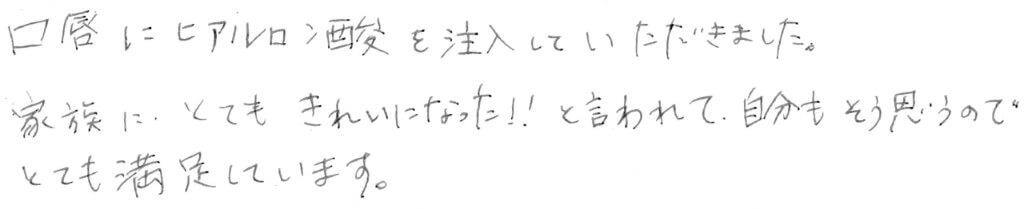 口唇にヒアルロン酸を注入していただきました。
家族に、とてもきれいになった!!と言われて、自分もそう思うので
とても満足しています。